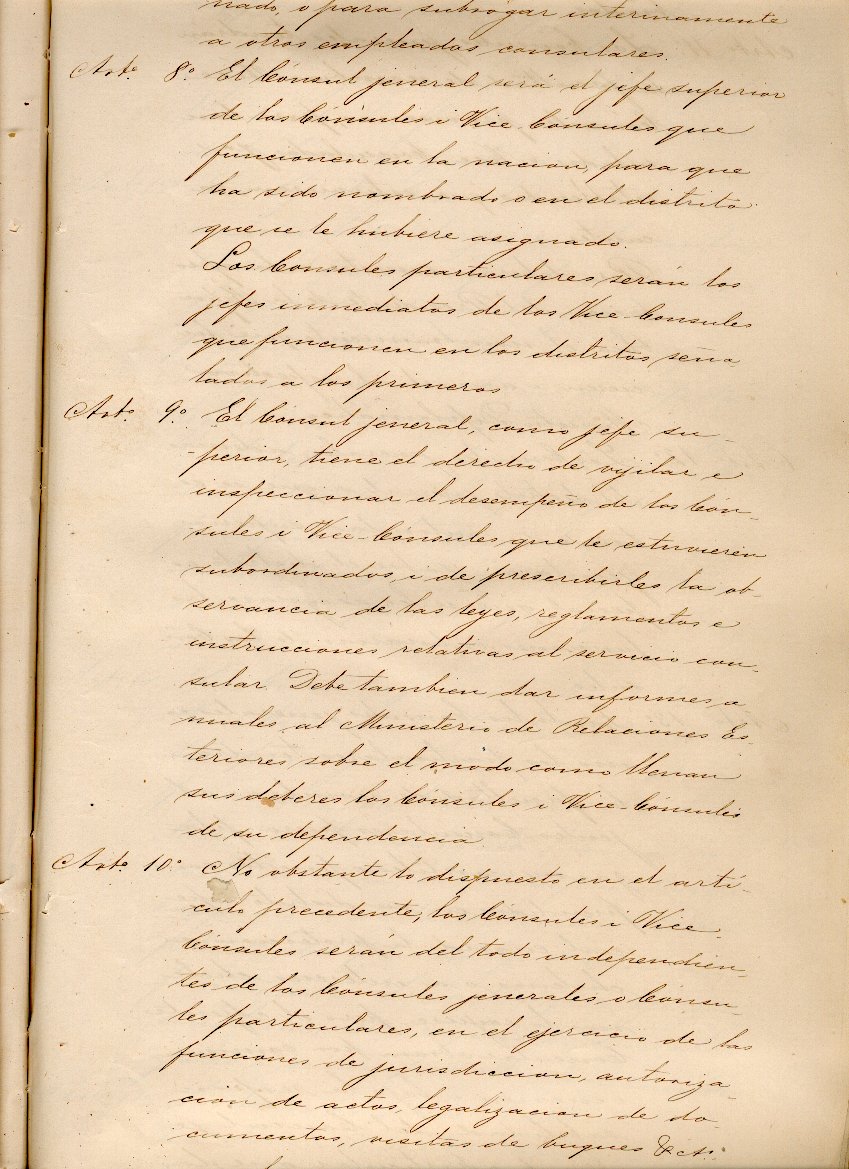 nado, o para subrogar interinamente
a otros empleados consulares.
Arto. 8º El Cónsul jeneral será el jefe superior
de los Cónsules i Vice Cónsules que
funcionen en la nacion, para que
ha sido nombrado o en el distrito
que se le hubiere asignado.
Los Consules particulares serán los
jefes inmediatos de los Vice-Consules
que funcionen en los distritos seña
lados a los primeros
Arto. 9º El Cónsul jeneral, como jefe su-
perior, tiene el derecho de vijilar e
inspeccionar el desempeño de los Cón-
sules i Vice-Cónsules que le estuvieren
subordinados, i de prescribirles la ob-
servancia de las leyes, reglamentos e
instrucciones relativas al servicio con-
sular. Debe tambien dar informes a
nuales al Ministerio de Relaciones Es-
teriores sobre el modo como llenan
sus deberes los Cónsules i Vice-Cónsules
de su dependencia
Arto. 10º No obstante lo dispuesto en el artí-
culo precedente, los Cónsules i Vice
Cónsules serán del todo independien-
tes de los Cónsules jenerales o Cónsu-
les particulares, en el ejercicio de las
funciones de jurisdiccion, autoriza-
cion de actos, legalizacion de do-
cumentos, visitas de buques &cª.